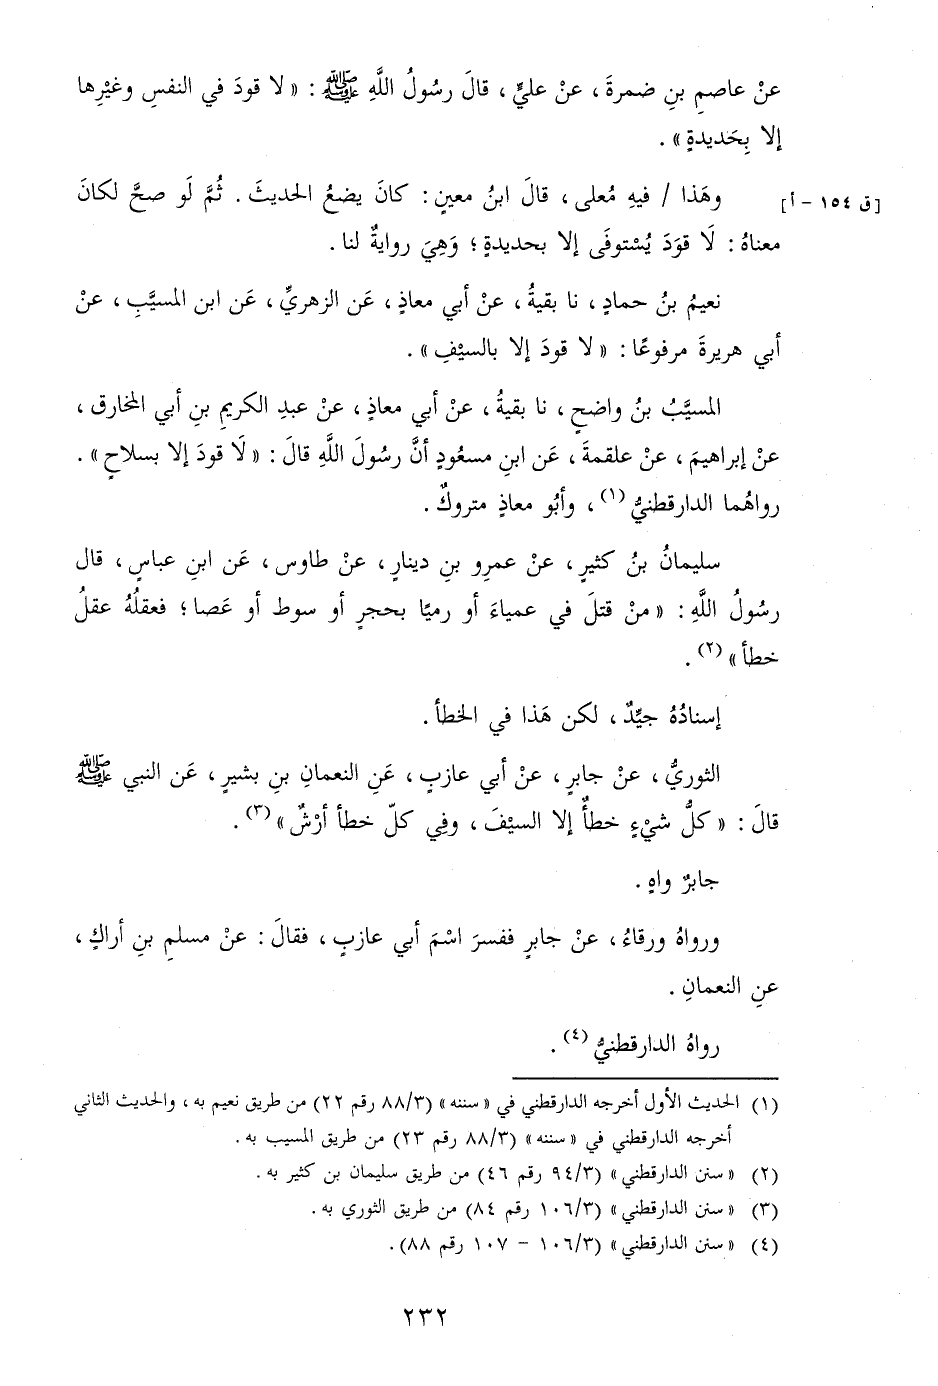 عنْ عاصمِ بنِ ضمرةَ ، عنْ عليٍّ ، قالَ رسُولُ اللَّهِ ﷺ : « لا قودَ في النفسِ وغيْرِها
إلا بِحَديدةٍ » .
وهَذا / فيهِ مُعلى ، قالَ ابنُ معينٍ : كانَ يضعُ الحديثَ . ثُمَّ لَو صحَّ لكانَ
[ق ١٥٤ - أ]
معناهُ : لَا قوَدَ يُسْتوفَى إلا بحديدةٍ ؛ وَهِيَ روايةٌ لنا .
نعيمُ بنُ حمادٍ ، نا بقيةُ ، عنْ أبي معاذٍ ، عَن الزهريِّ ، عَن ابن المسيَّبِ ، عنْ
أبي هريرةَ مرفوعًا : « لا قودَ إلا بالسيْفِ » .
المسيَّبُ بنُ واضحٍ ، نا بقيةُ ، عنْ أبي معاذٍ ، عنْ عبدِ الكريمِ بنِ أبي المخارق ،
عنْ إبراهيمَ ، عنْ علقمةَ ، عَن ابنِ مسعُودٍ أنَّ رسُولَ اللَّهِ قالَ : « لَا قودَ إلا بسلاحٍ » .
رواهُما الدارقطنيُّ (١) ، وأبُو معاذٍ متروكٌ .
سليمانُ بنُ كثيرٍ ، عنْ عمرِو بنِ دينارٍ ، عنْ طاوس ، عَن ابنِ عباسٍ ، قال
رسُولُ اللَّهِ : « منْ قتلَ في عمياءَ أو رميًا بحجرٍ أو سوط أو عَصا ؛ فعقلُهُ عقلُ
خطأ » (٢) .
إسنادُهُ جيِّدٌ ، لكن هَذا في الخطأ .
الثوريُّ ، عنْ جابرٍ ، عنْ أبي عازبٍ ، عَنِ النعمانِ بنِ بشيرٍ ، عَن النبي ﷺ
قالَ : « كلُّ شيْءٍ خطأٌ إلا السيْفَ ، وفِي كلّ خطأ أرْشٌ » (٣) .
جابرٌ واهٍ .
ورواهُ ورقاءُ ، عنْ جابرٍ ففسرَ اسْمَ أبي عازبٍ ، فقالَ : عنْ مسلمِ بنِ أراكٍ ،
عنِ النعمانِ .
رواهُ الدارقطنيُّ (٤) .
(١) الحديث الأول أخرجه الدارقطني في « سننه » (٨٨/٣ رقم ٢٢) من طريق نعيم به ، والحديث الثاني
أخرجه الدارقطني في « سننه » (٨٨/٣ رقم ٢٣) من طريق المسيب به .
(٢) « سنن الدارقطني » (٩٤/٣ رقم ٤٦) من طريق سليمان بن كثير به .
(٣) « سنن الدارقطني » (١٠٦/٣ رقم ٨٤) من طريق الثوري به .
(٤) « سنن الدارقطني » (١٠٦/٣ - ١٠٧ رقم ٨٨).
٢٣٢